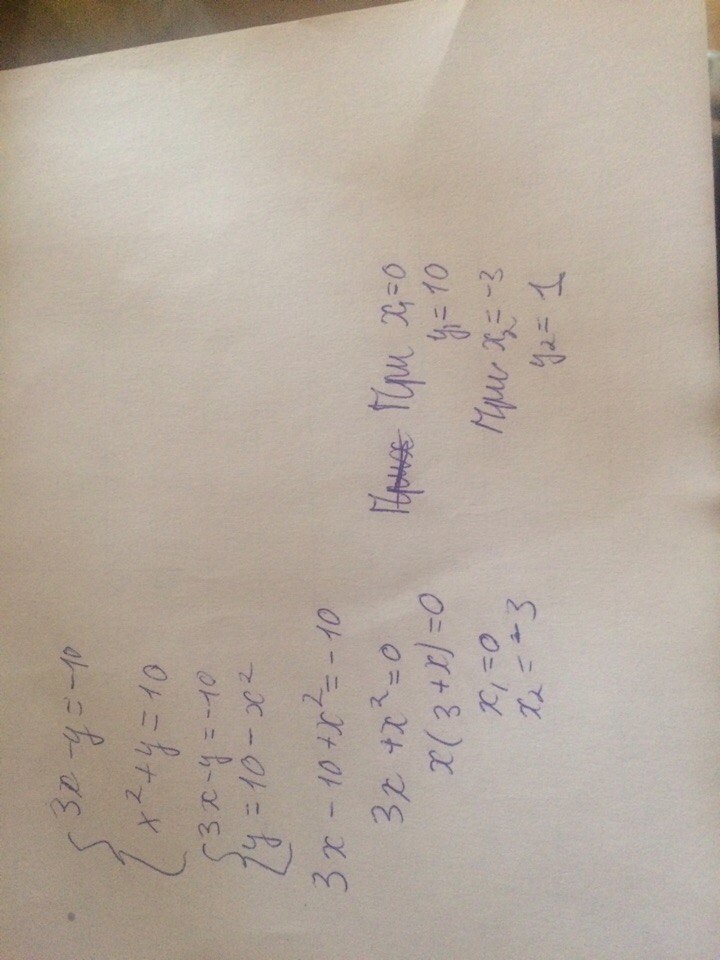 3x - y = -10
x² + y = 10
3x - y = -10
y = 10 - x²
3x - 10 + x² = -10
3x + x² = 0
x(3 + x) = 0
x₁ = 0
x₂ = -3
При x₁ = 0
y₁ = 10
При x₂ = -3
y₂ = 1